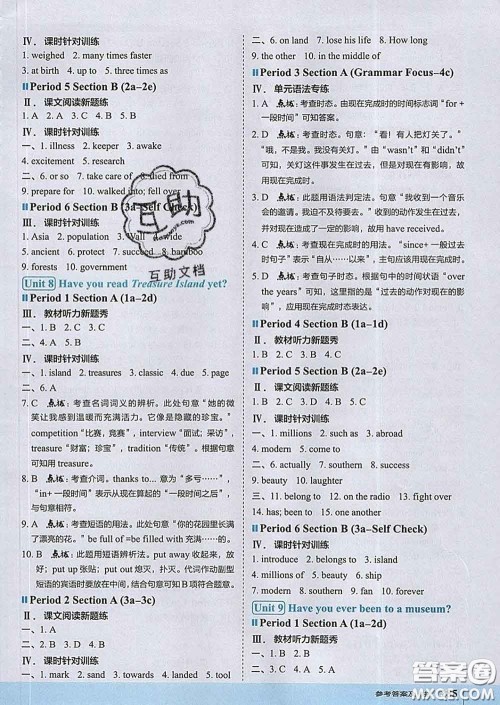 Ⅳ. 课时针对训练
1. weighed 2. many times faster
3. at birth 4. up to 5. three times as
Period 5 Section B (2a–2e)
Ⅱ. 课文阅读新题练
1. A 2. A 3. C
Ⅳ. 课时针对训练
一、1. illness 2. keeper 3. awake
4. excitement 5. research
二、6. or so 7. take care of 8. died from
9. prepare for 10. walked into; fell over
Period 6 Section B (3a–Self Check)
Ⅲ. 课时针对训练
1. Asia 2. population 3. Wall 4. wide
5. ancient 6. protect 7. succeed 8. bamboo
9. forests 10. government
Unit 8 Have you read Treasure Island yet?
Period 1 Section A (1a–2d)
Ⅲ. 教材听力新题秀
一、1. A 2. B 3. C 4. A
二、B
Ⅳ. 课时针对训练
一、1. island 2. treasure 3. classic 4. due 5. page
二、6. A
7. C 点拨：考查名词词义的辨析。此处句意“她的微
笑让我感到温暖而充满活力。它像是隐藏的珍宝。”
competition “比赛，竞赛”，interview “面试；采访”，
treasure “财富；珍宝”，tradition “传统”。根据句意
可知用 treasure。
8. B 点拨：考查介词。thanks to... 意为“多亏……”，
“in+ 一段时间”表示从现在算起的“一段时间之后”，
与句意相符。
9. A 点拨：考查短语的用法。句意“你的花园里长满
了漂亮的花。”be full of =be filled with 充满……的。
10. B 点拨：此题用短语辨析法。put away 收起来，放
好；put up 张贴；put out 熄灭，扑灭。代词作动副型
短语的宾语时要放在中间，结合句意可知 B 项符合题意。
Period 2 Section A (3a–3c)
Ⅱ. 课文阅读新题练
一、1. A
Ⅳ. 课时针对训练
一、1. mark 2. sand 3. towards 4. land 5. tool
二、6. on land 7. lose his life 8. How long
9. the other 10. in the middle of
Period 3 Section A (Grammar Focus–4c)
Ⅳ. 单元语法专练
1. C 点拨：考查时态。由现在完成时的时间标志词“for +
一段时间”可知答案。
2. D 点拨：考查时态。句意：“看！有人把灯关了。”
“哦，不是我。我没有关它。”由“wasn't”和“didn't”
可知，关灯这件事发生在过去，但对现在有影响，故
用现在完成时。
3. D 点拨：此题用语法判定法。句意“我收到一个音乐
会的邀请。我迫不及待。”收到的动作发生在过去，
并对现在造成了一定的影响，故用 have received。
4. C 点拨：考查时态的用法。“since+ 一般过去时句
子”表示“自从……以来”，主句应为现在完成时态。
5. D 点拨：考查句子时态。根据句中的时间状语“over
the years”可知，这里是指“过去的动作对现在的影
响”，应用现在完成时态表达。
Period 4 Section B (1a–1d)
Ⅱ. 教材听力新题秀
1. B 2. C 3. C 4. D
Period 5 Section B (2a–2e)
Ⅱ. 课文阅读新题练
1. D 2. B 3. C
Ⅳ. 课时针对训练
一、1. millions 2. such as 3. abroad
4. modern 5. home to
二、6. actually 7. southern 8. success
9. beauty 10. laughter
三、11. belong to 12. on the radio 13. fight over
14. has been to 15. ever since then
Period 6 Section B (3a–Self Check)
Ⅳ. 课时针对训练
1. introduce 2. belongs 3. island 4. finished
5. millions of 6. beauty 7. southern 8. line
9. modern 10. fans
Unit 9 Have you ever been to a museum?
Period 1 Section A (1a–2d)
Ⅲ. 教材听力新题秀
一、1. B 2. C 3. A 4. A
二、1. B 2. A 3. B
互助
互助文档
参考答案
答案圈
MXQE.COM